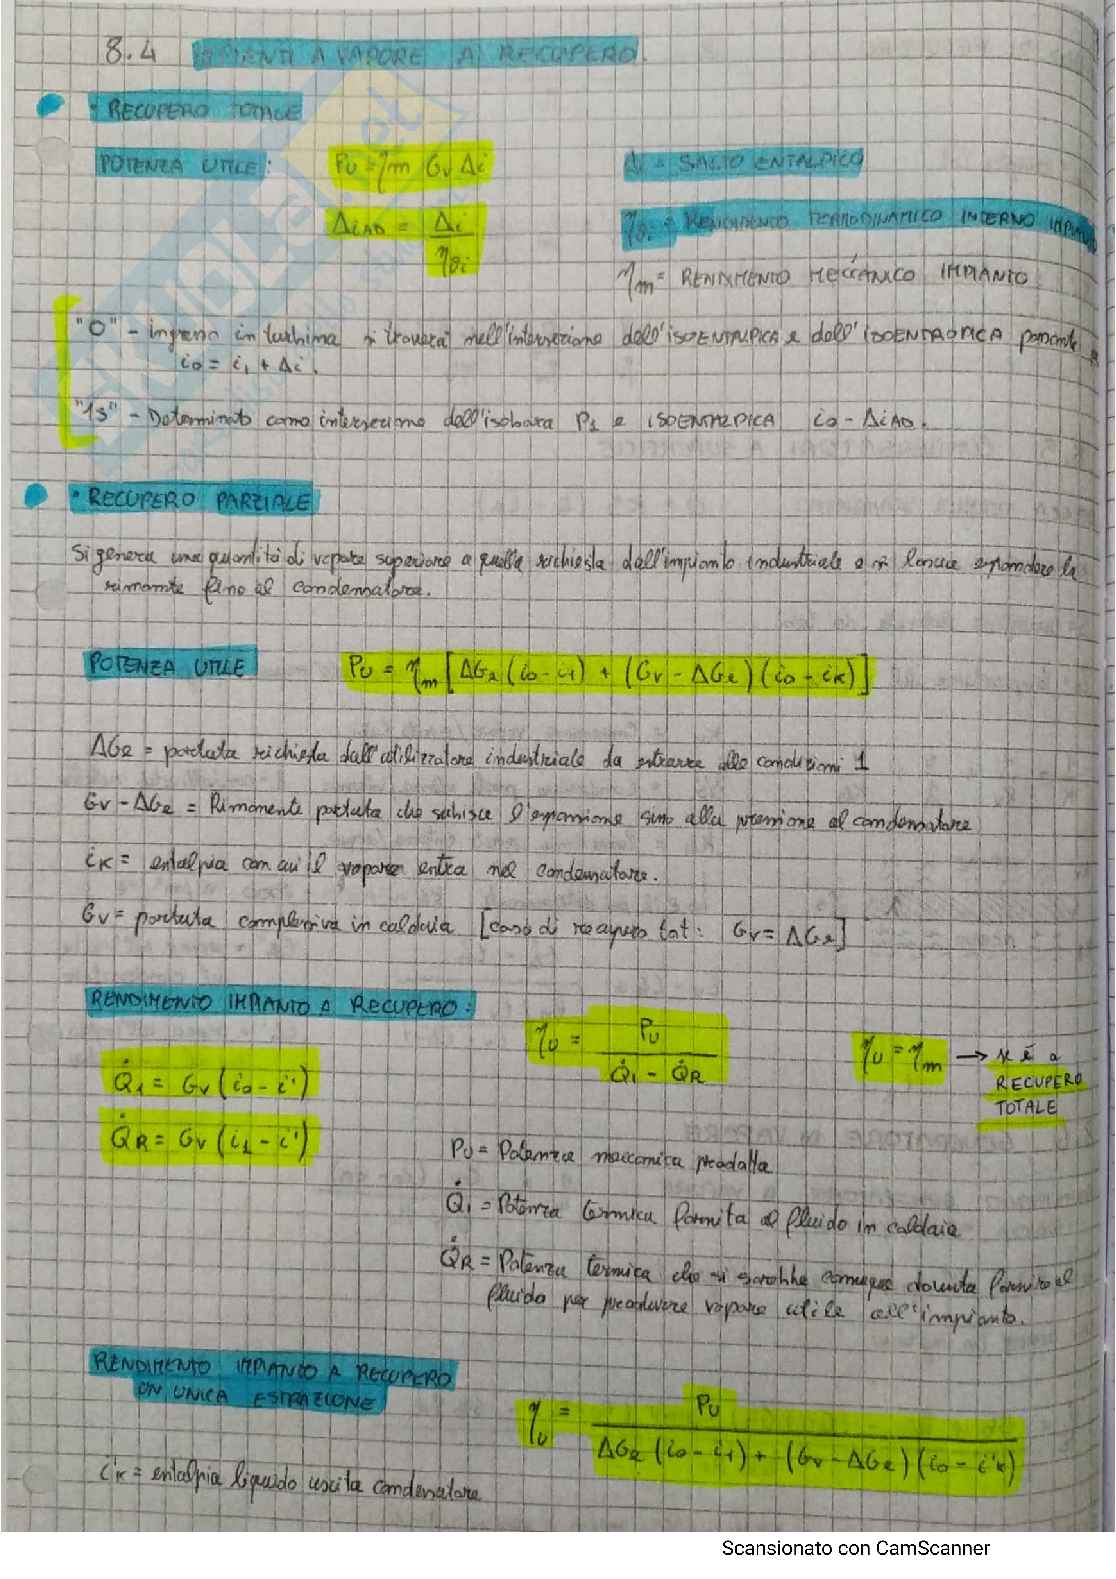 8.4 IMPIANTI A VAPORE A RECUPERO.
• RECUPERO TOTALE
POTENZA UTILE: PU = ηm GV Δi Δi = SALTO ENTALPICO
ΔiAD = Δi / ηθi ηθi = RENDIMENTO TERMODINAMICO INTERNO IMPIANTO
ηm = RENDIMENTO MECCANICO IMPIANTO
"0" - ingresso in turbina si troverà nell'intersezione dell'ISOENTALPICA e dell'ISOENTROPICA passante
i0 = i1 + Δi.
"1s" - Determinato come intersezione dell'isobara P1 e ISOENTALPICA i0 - ΔiAD.
• RECUPERO PARZIALE
Si genera una quantità di vapore superiore a quella richiesta dall'impianto industriale e si lascia espandere la
rimanente fino al condensatore.
POTENZA UTILE PU = ηm [ΔGR (i0 - i1) + (GV - ΔGR) (i0 - iK)]
ΔGR = portata richiesta dall'utilizzatore industriale da estrarre alle condizioni 1
GV - ΔGR = Rimanente portata che subisce l'espansione sino alla pressione al condensatore
iK = entalpia con cui il vapore entra nel condensatore.
GV = portata complessiva in caldaia [caso di recupero tot: GV = ΔGR]
RENDIMENTO IMPIANTO A RECUPERO:
ηU = PU / (Q̇1 - Q̇R) ηU = ηm → se è a
RECUPERO
TOTALE
Q̇1 = GV (i0 - i')
Q̇R = GV (i1 - i')
PU = Potenza meccanica prodotta
Q̇1 = Potenza termica fornita al fluido in caldaia
Q̇R = Potenza termica che si sarebbe comunque dovuta fornire al
fluido per produrre vapore utile all'impianto.
RENDIMENTO IMPIANTO A RECUPERO
ON UNICA ESTRAZIONE
ηU = PU / (ΔGR (i0 - i1) + (GV - ΔGR) (i0 - i'K))
i'K = entalpia liquido uscita condensatore
Scansionato con CamScanner